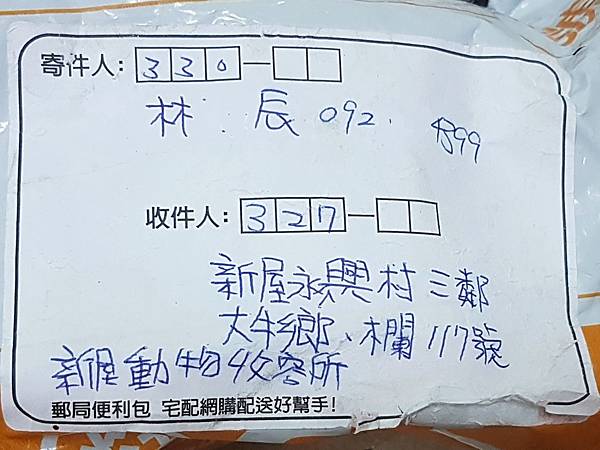 寄件人: 330—
林 辰 092 899
收件人: 327—
新屋永興村三鄰
大牛欄117號
新屋動物收容所
郵局便利包 宅配網購配送好幫手!